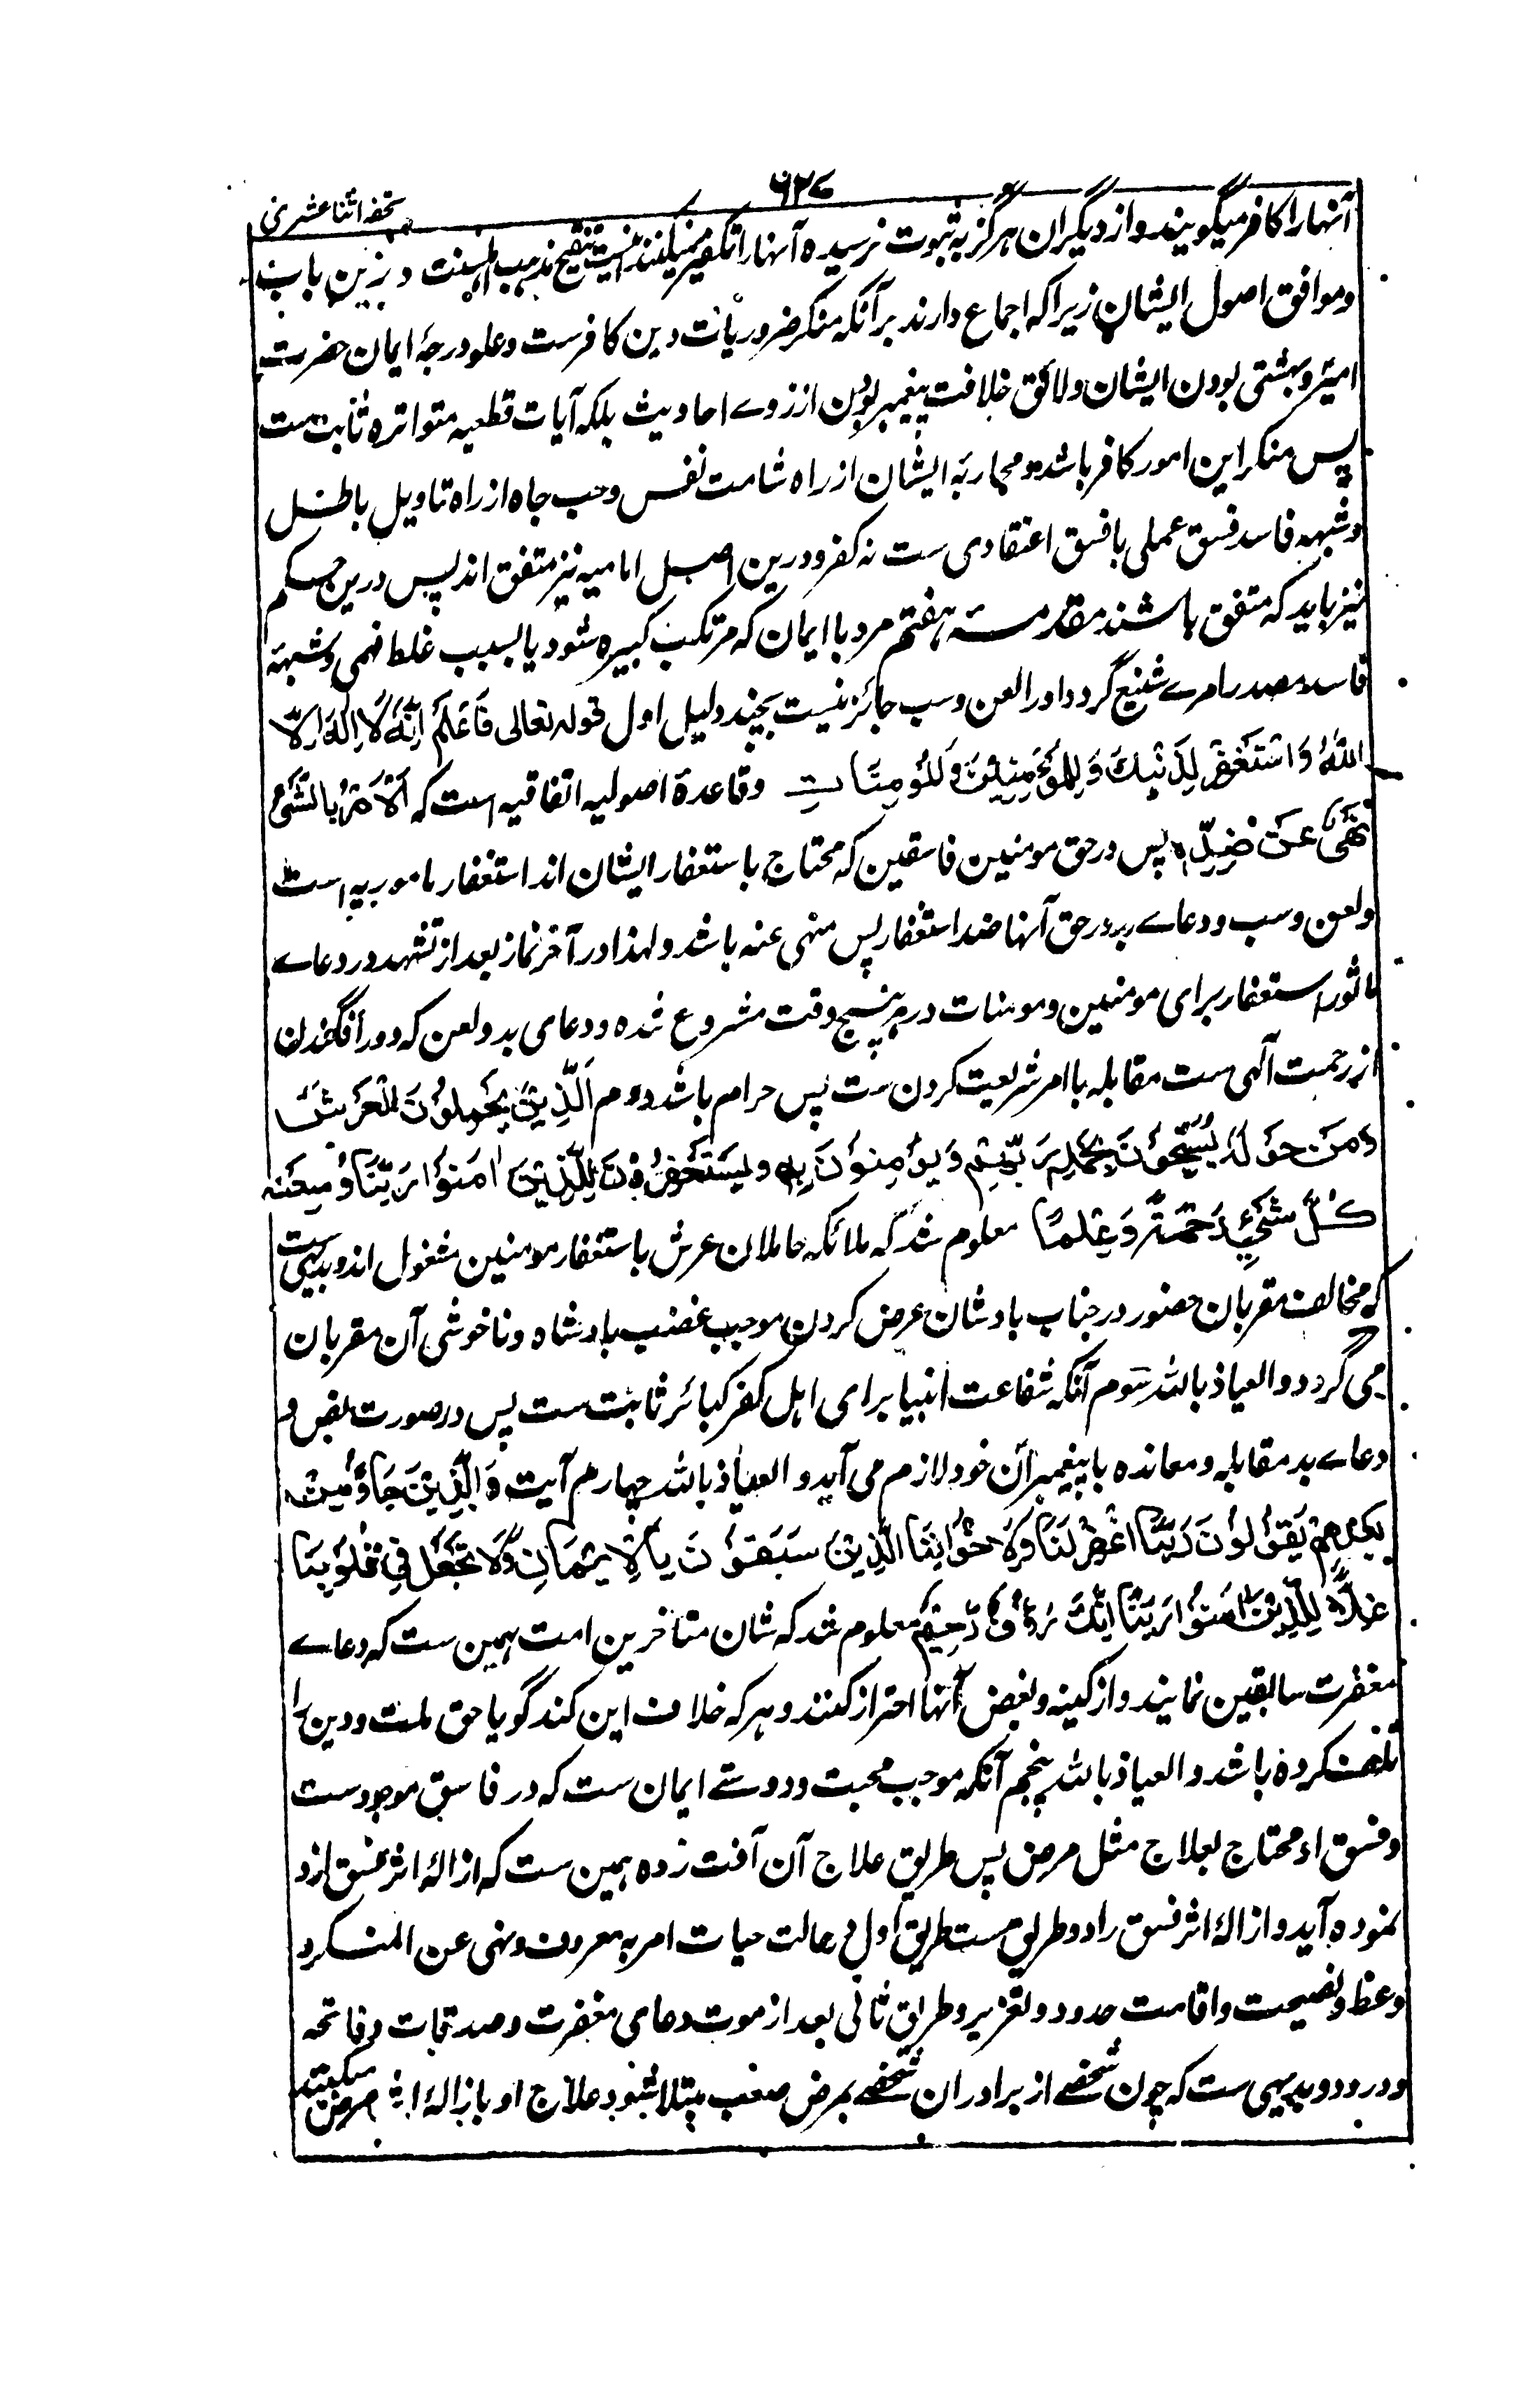 ۶۲۷
تحفہ اثنا عشریٰ
آنهارا کافر میگویند و از دیگران هرگز به ثبوت نرسیده آنهارا تکفیر نمیکنند اینست تنقیح مذهب اهلسنت درین باب
وموافق اصول ایشان زیراکه اجماع دارند برآنکه منکر ضروریات دین کافرست و علو درجهٔ ایمان حضرت
امیرؓ و بهشتی بودن ایشان ولائق خلافت پیغمبر بودن از روے احادیث بلکه آیات قطعیه متواتره ثابت ست
پس منکر این امور کافر باشد و محاربهٔ ایشان از راه شامت نفس وحب جاه از راه تاویل باطل
وشبهه فاسد فسق عملی یا فسق اعتقادی ست نه کفر و درین اصل امامیه نیز متفق اند پس درین حکم
نیز باید که متفق باشند مقدمه هفتم مرد با ایمان که مرتکب کبیره شود یا بسبب غلط فهمی و شبهه
فاسد مصدر امرے شنیع گردد او را لعن وسب جائز نیست بچند دلیل اول قوله تعالی فَاعْلَمْ اَنَّهٗ لَا اِلٰهَ اِلَّا
اللّٰهُ وَاسْتَغْفِرْ لِذَنْبِكَ وَلِلْمُؤْمِنِيْنَ وَالْمُؤْمِنَاتِ وقاعدهٔ اصولیه اتفاقیه است که اَلْاَمْرُ بِالشَّیْءِ
نَهْیٌ عَنْ ضِدِّهٖ پس در حق مومنین فاسقین که محتاج باستغفار ایشان اند استغفار مامور به است
ولعن وسب و دعاے بد در حق آنها ضد استغفار پس منهی عنه باشد ولهذا در آخر نماز بعد از تشهد در دعاے
ماثور استغفار برای مومنین ومومنات در هر پنج وقت مشروع شده و دعای بد و لعن که دور افگندن
از رحمت آلهی ست مقابله با امر شریعت کردن ست پس حرام باشد دوم اَلَّذِيْنَ يَحْمِلُوْنَ الْعَرْشَ
وَمَنْ حَوْلَهٗ يُسَبِّحُوْنَ بِحَمْدِ رَبِّهِمْ وَيُؤْمِنُوْنَ بِهٖ وَيَسْتَغْفِرُوْنَ لِلَّذِيْنَ اٰمَنُوْا رَبَّنَا وَسِعْتَ
كُلَّ شَيْءٍ رَحْمَةً وَعِلْمًا معلوم شد که ملائکه حاملان عرش باستغفار مومنین مشغول اند وبدیهی ست
که مخالفت مقربان حضور در جناب بادشاهان عرض کردن موجب غضب بادشاه و ناخوشی آن مقربان
می گردد والعیاذ بالله سوم آنکه شفاعت انبیا برای اهل کفر کبائر ثابت ست پس درصورت بغض و
دعاے بد مقابله ومعانده با پیغمبران خود لازم می آید والعیاذ بالله چهارم آیت وَالَّذِيْنَ جَاءُوْا مِنْ
بَعْدِهِمْ يَقُوْلُوْنَ رَبَّنَا اغْفِرْ لَنَا وَلِاِخْوَانِنَا الَّذِيْنَ سَبَقُوْنَا بِالْاِيْمَانِ وَلَا تَجْعَلْ فِيْ قُلُوْبِنَا
غِلًّا لِلَّذِيْنَ اٰمَنُوْا رَبَّنَا اِنَّكَ رَءُوْفٌ رَّحِيْمٌ معلوم شد که شان متاخرین امت همین ست که دعاے
مغفرت سابقین نمایند و از کینه وبغض آنها احتراز کنند و هرکه خلاف این کند گویا حق ملت و دین را
تلف کرده باشد والعیاذ بالله پنجم آنکه موجب محبت و دوستے ایمان ست که در فاسق موجودست
وفسق او محتاج بعلاج مثل مرض پس طریق علاج آن آفت زده همین ست که ازالهٔ اثر فسق ازو
نموده آید و ازالهٔ اثر فسق را دو طریق ست طریق اول در حالت حیات امر به معروف ونهی عن المنکر و
وعظ ونصیحت واقامت حدود و تعزیر و طریق ثانی بعد از موت دعای مغفرت و صدقات و فاتحه
و درود و بدیهی ست که چون شخصے از برادران شخصے بمرض صعب مبتلا شود علاج او بازالهٔ این مرض میکنند